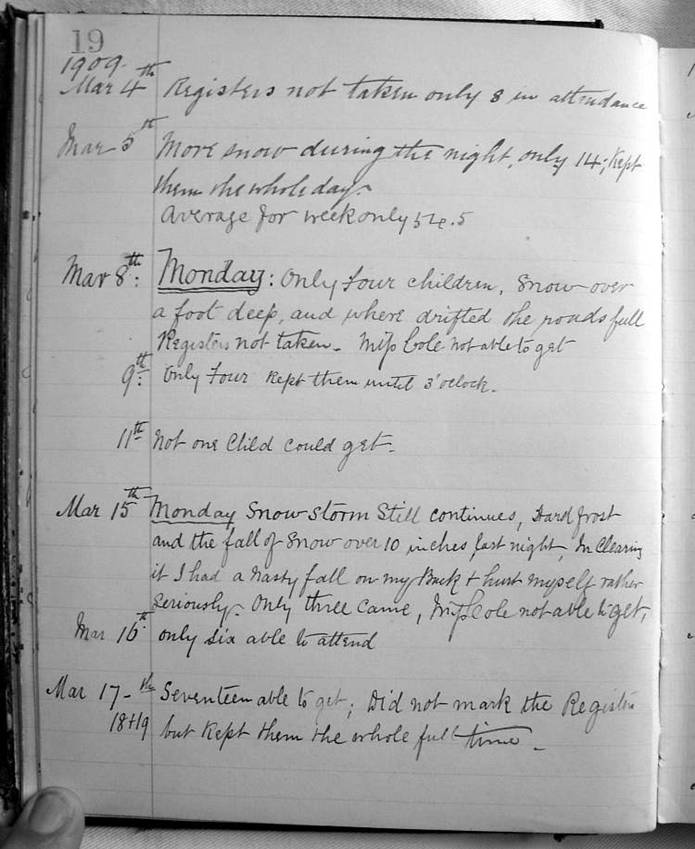 19
1909.
Mar 4th Registers not taken only 8 in attendance
Mar 5th More snow during the night, only 14; Kept
them the whole day.
Average for week only 54.5
Mar 8th: Monday: Only four children, Snow over
a foot deep, and where drifted the roads full
Registers not taken. Miss Cole not able to get
9th: Only Four Kept them until 3 'oclock.
11th Not one Child could get.
Mar 15th Monday Snow Storm Still continues, Hard frost
and the fall of Snow over 10 inches last night, In Clearing
it I had a nasty fall on my Back & hurt myself rather
seriously. Only three came, Miss Cole not able to get,
Mar 16th only six able to attend
Mar 17-th Seventeen able to get; Did not mark the Registers
18+19 but Kept them the whole full time.